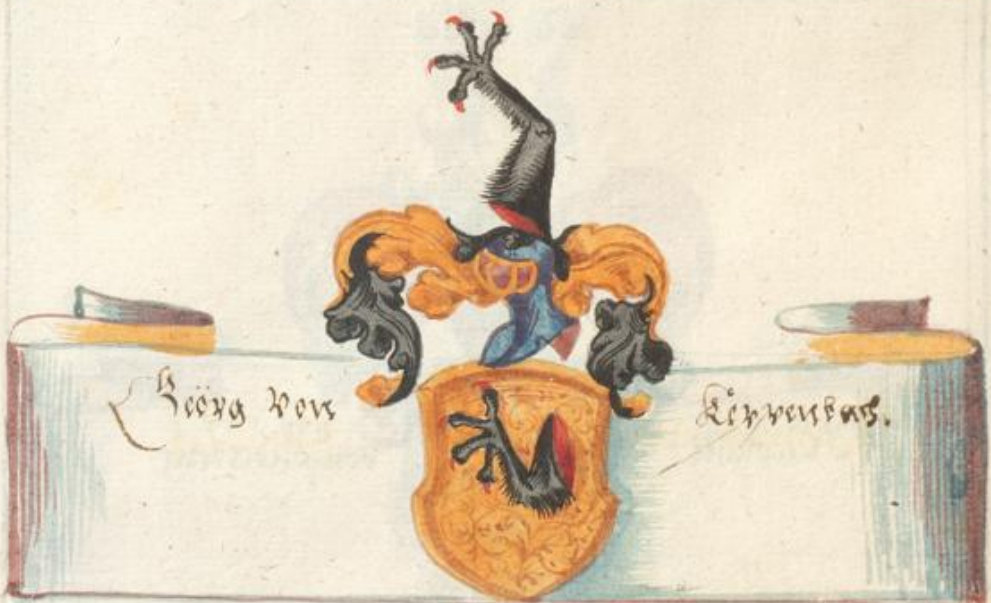 Geörg von Keppenbach.